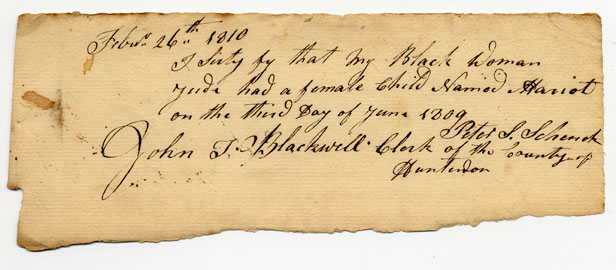 Febur. 26.th 1810
I Sirty fy that My Black Woman
Jude had a female Child Named Hariot
on the third Day of June 1809
Peter I. Schenck
John T. Blackwell. Clerk of the County of
Hunterdon